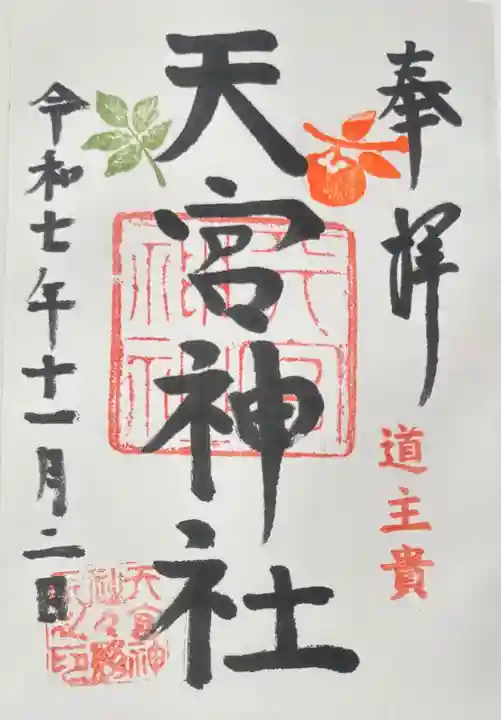 奉拝
道主貴
天宮神社
天宮神社
令和七年十一月二日